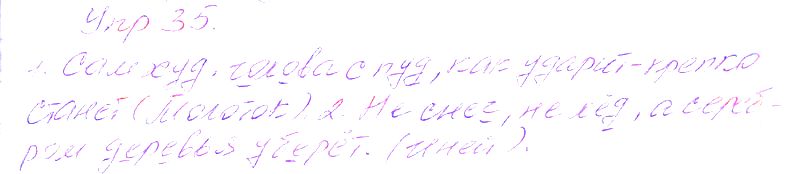 Упр 35.
1. Сам худ, голова с пуд, как ударит-крепко
станет (Молоток). 2. Не снег, не лёд, а сереб-
ром деревья уберёт. (иней).